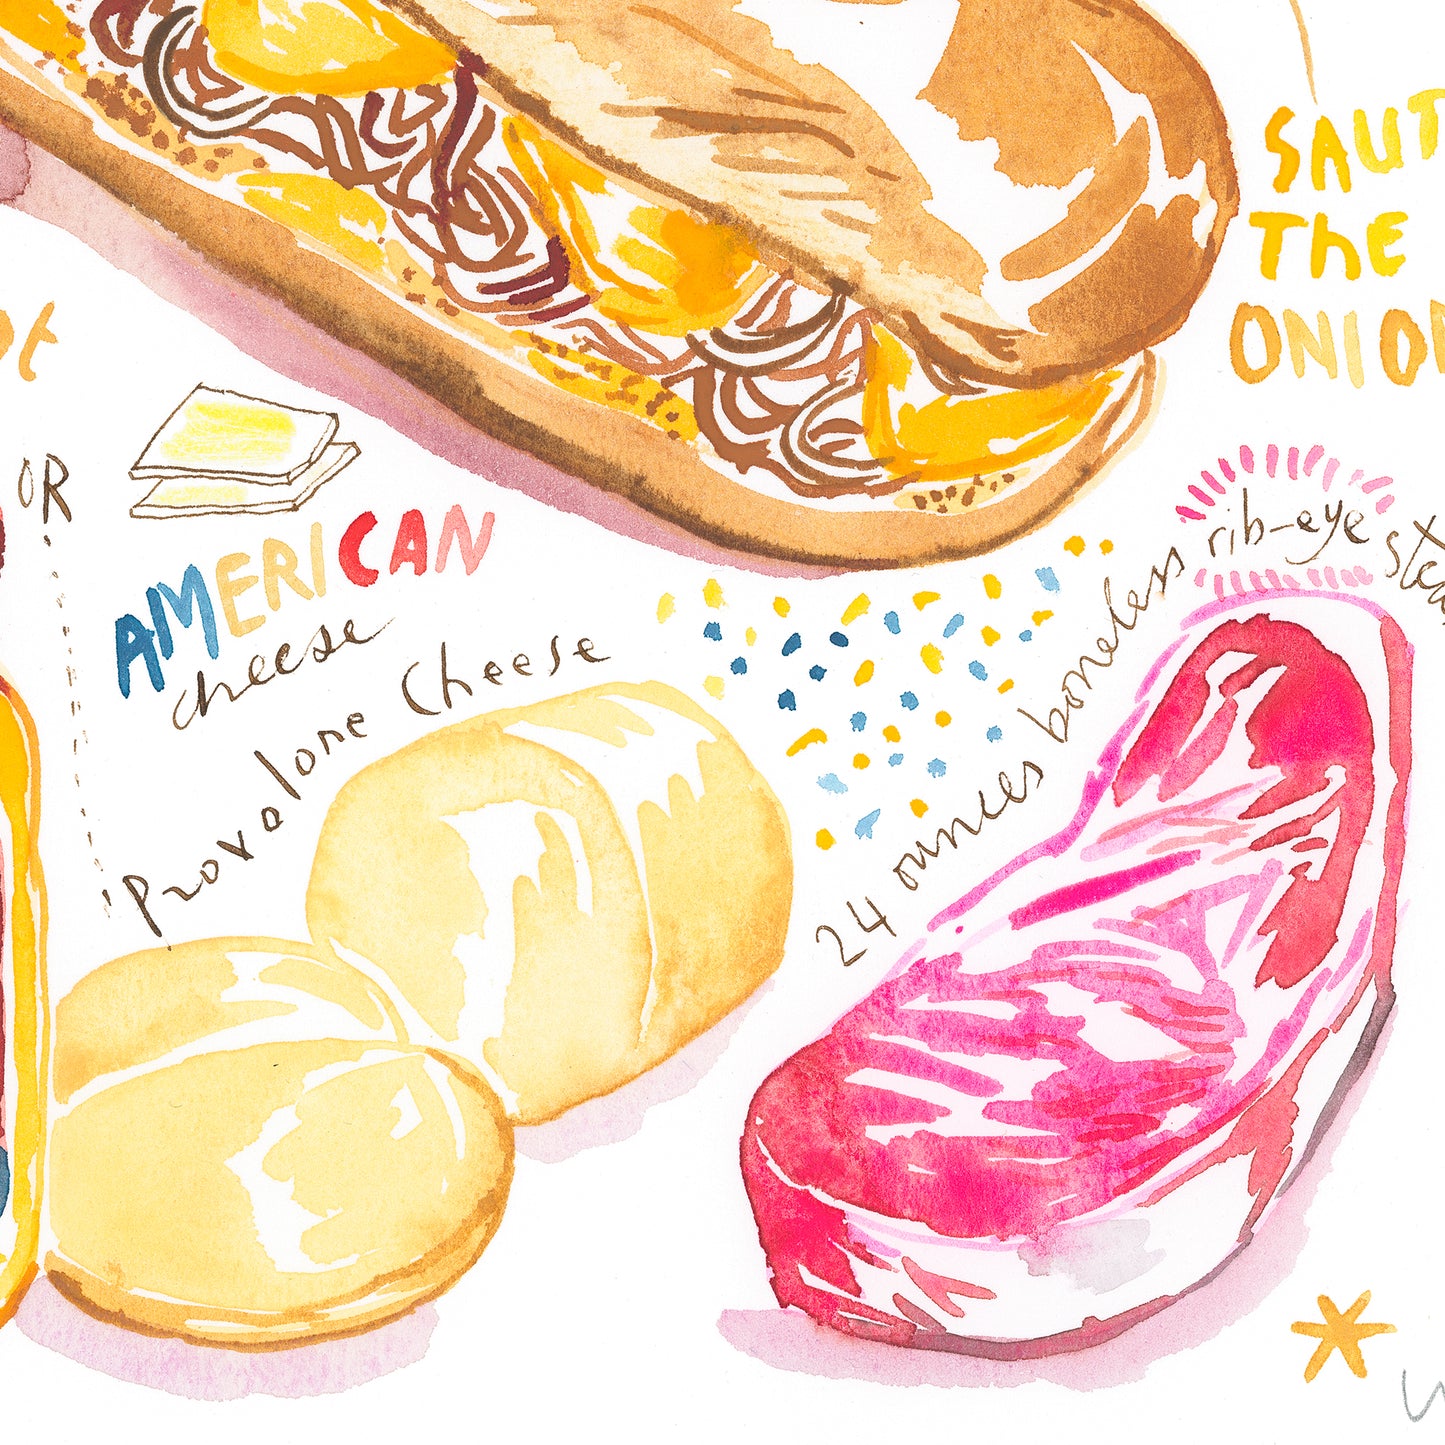 SAUT
THE
ONION
OR
AMERICAN
cheese
Provolone Cheese
24 ounces boneless rib-eye stea